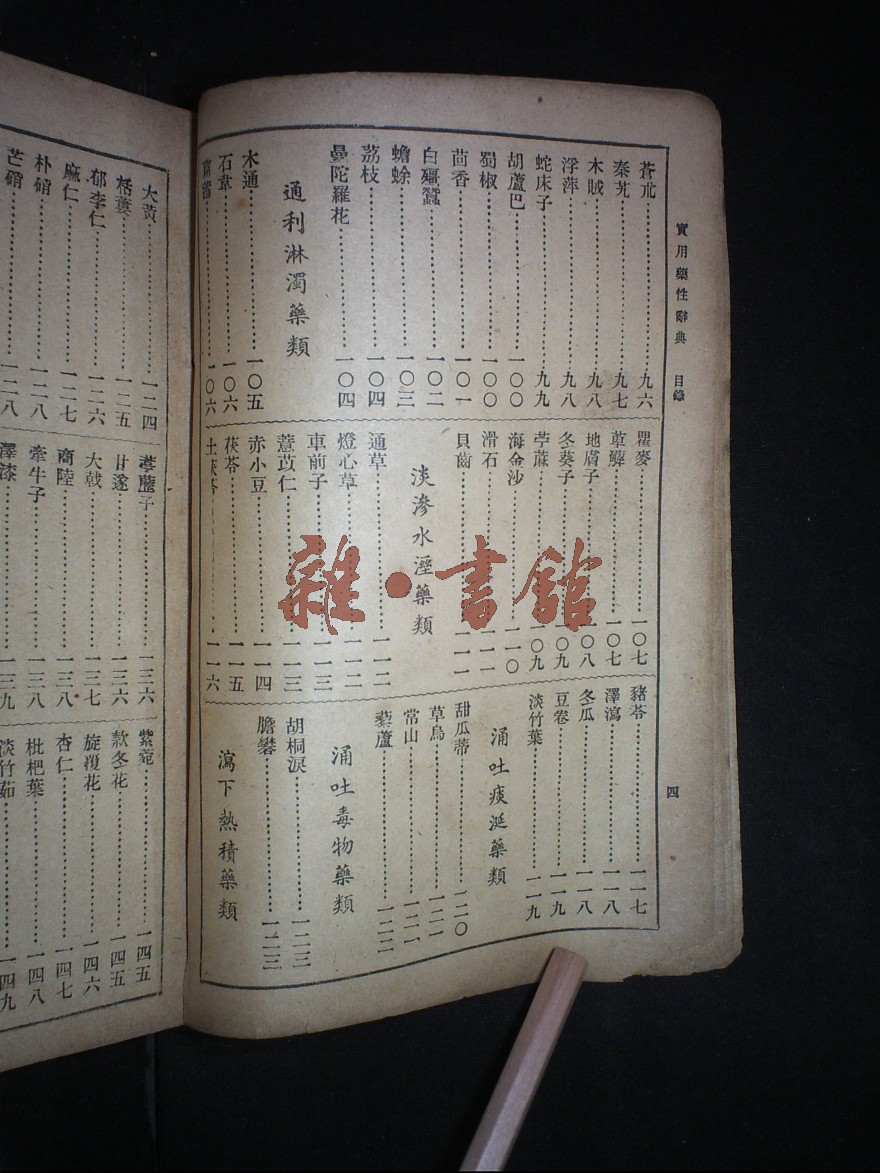 實用藥性辭典 目錄
四
蒼朮⋯⋯九六
秦艽⋯⋯九七
木賊⋯⋯九八
浮萍⋯⋯九八
蛇床子⋯⋯九九
胡蘆巴⋯⋯一〇〇
蜀椒⋯⋯一〇〇
茴香⋯⋯一〇一
白殭蠶⋯⋯一〇二
蟾蜍⋯⋯一〇三
荔枝⋯⋯一〇四
曼陀羅花⋯⋯一〇四
通利淋濁藥類
木通⋯⋯一〇五
石韋⋯⋯一〇六
⋯⋯一〇六
瞿麥⋯⋯一〇七
萆薢⋯⋯一〇七
地膚子⋯⋯一〇八
冬葵子⋯⋯一〇九
苧蔴⋯⋯一〇九
海金沙⋯⋯一一〇
滑石⋯⋯一一一
貝齒⋯⋯一一一
淡滲水溼藥類
通草⋯⋯一一二
燈心草⋯⋯一一二
車前子⋯⋯一一三
薏苡仁⋯⋯一一三
赤小豆⋯⋯一一四
茯苓⋯⋯一一五
土茯苓⋯⋯一一六
豬苓⋯⋯一一七
澤瀉⋯⋯一一八
冬瓜⋯⋯一一八
豆卷⋯⋯一一九
淡竹葉⋯⋯一一九
涌吐痰涎藥類
甜瓜蒂⋯⋯一二〇
草烏⋯⋯一二一
常山⋯⋯一二一
藜蘆⋯⋯一二二
涌吐毒物藥類
胡桐淚⋯⋯一二三
膽礬⋯⋯一二三
瀉下熱積藥類
大黃⋯⋯一二四
栝蔞⋯⋯一二五
郁李仁⋯⋯一二六
麻仁⋯⋯一二七
朴硝⋯⋯一二八
芒硝⋯⋯一二八
葶藶子⋯⋯一三六
甘遂⋯⋯一三六
大戟⋯⋯一三七
商陸⋯⋯一三八
牽牛子⋯⋯一三八
澤漆⋯⋯一三九
紫菀⋯⋯一四五
款冬花⋯⋯一四五
旋覆花⋯⋯一四六
杏仁⋯⋯一四七
枇杷葉⋯⋯一四八
淡竹茹⋯⋯一四九
雜·書館